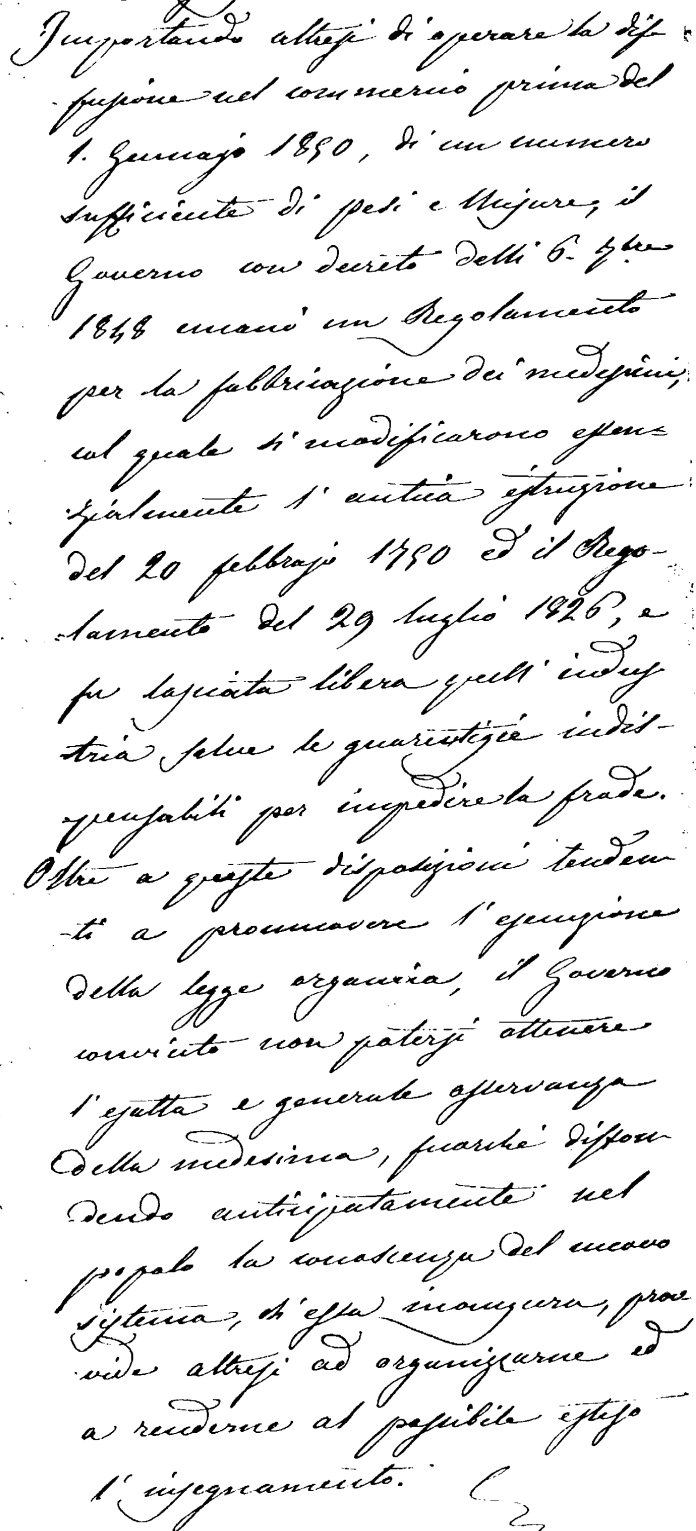 Importando altresì di operare la dif-
fusione nel commercio prima del
1. Gennajo 1850, di un numero
sufficiente di pesi e Misure, il
Governo con decreto delli 6. 7bre
1848 emanò un Regolamento
per la fabbricazione dei medesimi,
col quale si modificarono essen=
zialmente l'antica istruzione
del 20 febbrajo 1750 ed il Rego-
lamento del 29 luglio 1826, e
fu lasciata libera quell'indus
tria, salve le guarentigie indis-
pensabili per impedire la frode.
Oltre a queste disposizioni tenden
-ti a promuovere l'esecuzione
della legge organica, il Governo
convinto non potersi ottenere
l'esatta e generale osservanza
della medesima, fuorchè diffon
dendo anticipatamente nel
popolo la conoscenza del nuovo
sistema, ch'essa inaugura, prov
vide altresì ad organizzarne ed
a renderne al possibile esteso
l'insegnamento.